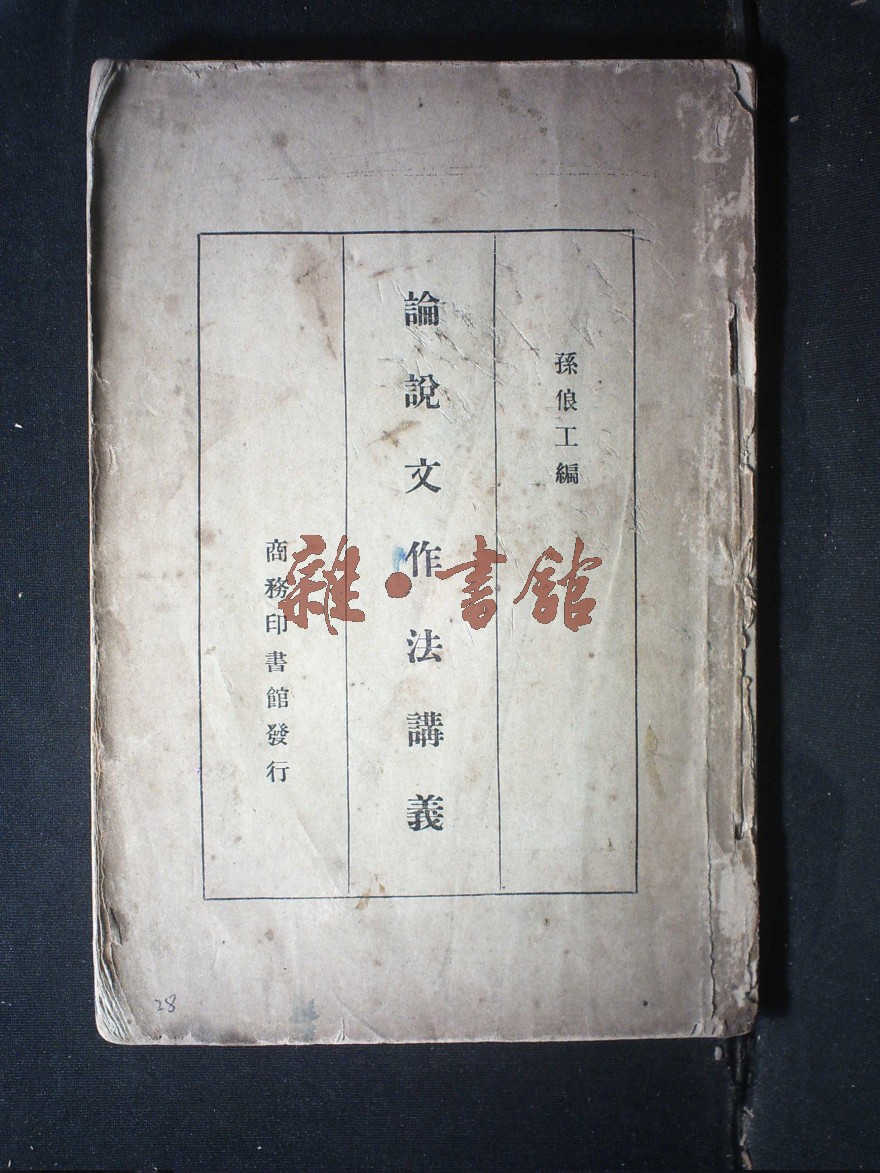 孫俍工編
論說文作法講義
商務印書館發行
雜·書館
28